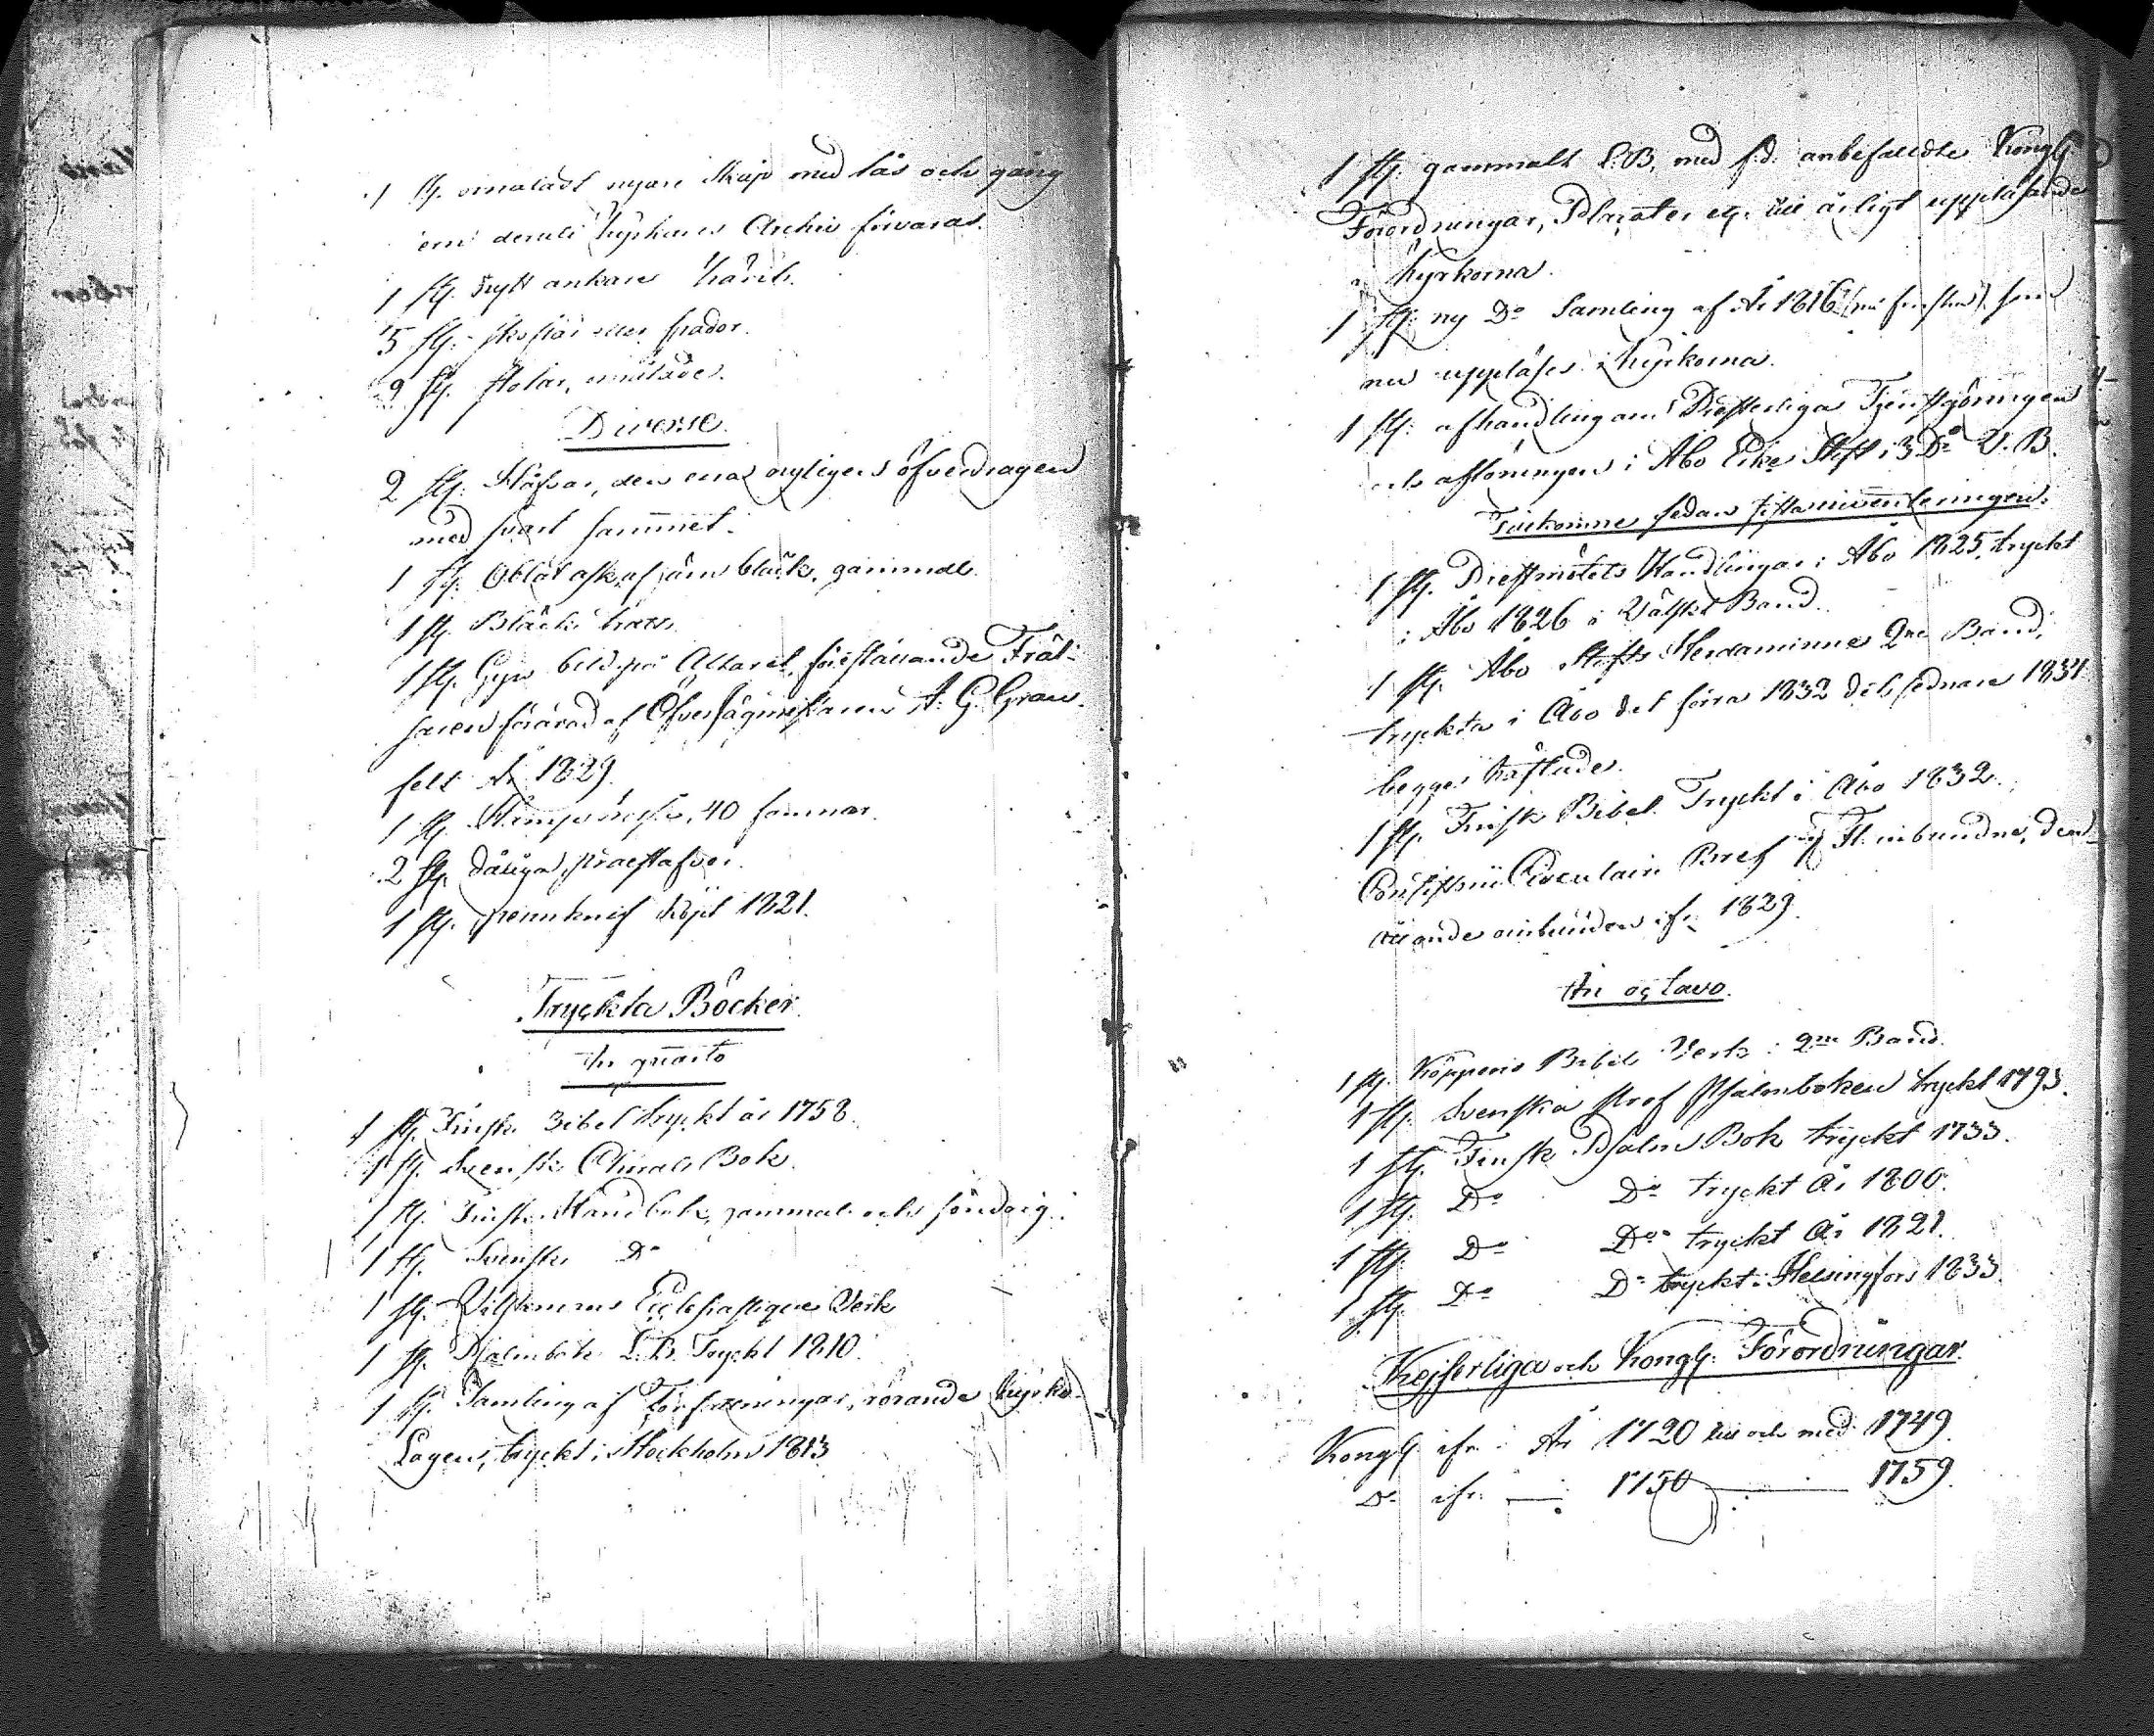 1 st. omåladt nyare Skåp med lås och gång
Kyrkans Archiv förvaras.
1 st. nytt ankare kåril.
5 st. eller spador.
9 st. stolar, omålade.
Diverse
2 st. Håfvar, den ena nyligen öfverdragen
med svart sammet.
1 st. Oblat ask, af järn bläck, gammal.
1 st. Bläck horn
1 st. Gips bild på Altaret, föreställande Fräl-
saren förärad af Öfverjägmästaren A. G. Gran-
felt År 1829.
1 st. 40 famnar.
2 st. dåliga
1 st. pennknif köpt 1821.
Tryckta Böcker
In quarto
1 st. Finsk Bibel tryckt år 1758.
1 st. Svensk Choral Bok.
1 st. Finsk Handbok, gammal och söndrig.
1 st. Svensk Do
1 st. Wilskmans Ecclesiastique Verk
1 st. Psalmbok L. B. Tryckt 1810.
1 st. Samling af Författningar, rörande Kyrko-
Lagen, tryckt i Stockholm 1813
1 st. gammalt L. B. med f. d. anbefalldte Kongl.
Förordningar, Placater etc. till årligt uppläsande
i Kyrkorna.
1 st. ny Do Samling af År 1816 som
nu uppläses i Kyrkorna.
1 st. afhandling om Presterliga Tjenstgöringen
och aflöningen i Åbo Erke Stift i 3 Do V. B.
Tilkomne sedan sista inventeringen.
1 st. Prestmötets Handlingar i Åbo 1825, tryckt
i Åbo 1826 i Wälskt Band.
1 st. Åbo Stifts Herdaminne 2ne Band,
tryckta i Åbo det förra 1832 det sednare 1834
begge häftade.
1 st. Finsk Bibel. Tryckt i Åbo 1832.
Consistorii Circulair Bref inbundne, den
ifr. 1829.
In octavo.
1 st. Köppens Bibel Verk i 2ne Band.
1 st. Svenska prof Psalmboken tryckt 1793.
1 st. Finsk Psalm Bok tryckt 1733.
1 st. Do Do tryckt År 1800.
1 st. Do Do tryckt År 1821.
1 st. Do Do tryckt i Helsingfors 1833.
Kejserliga och Kongl. Förordningar.
Kongl. ifr. År 1720 till och med 1749.
Do ifr. — 1750 — 1759.